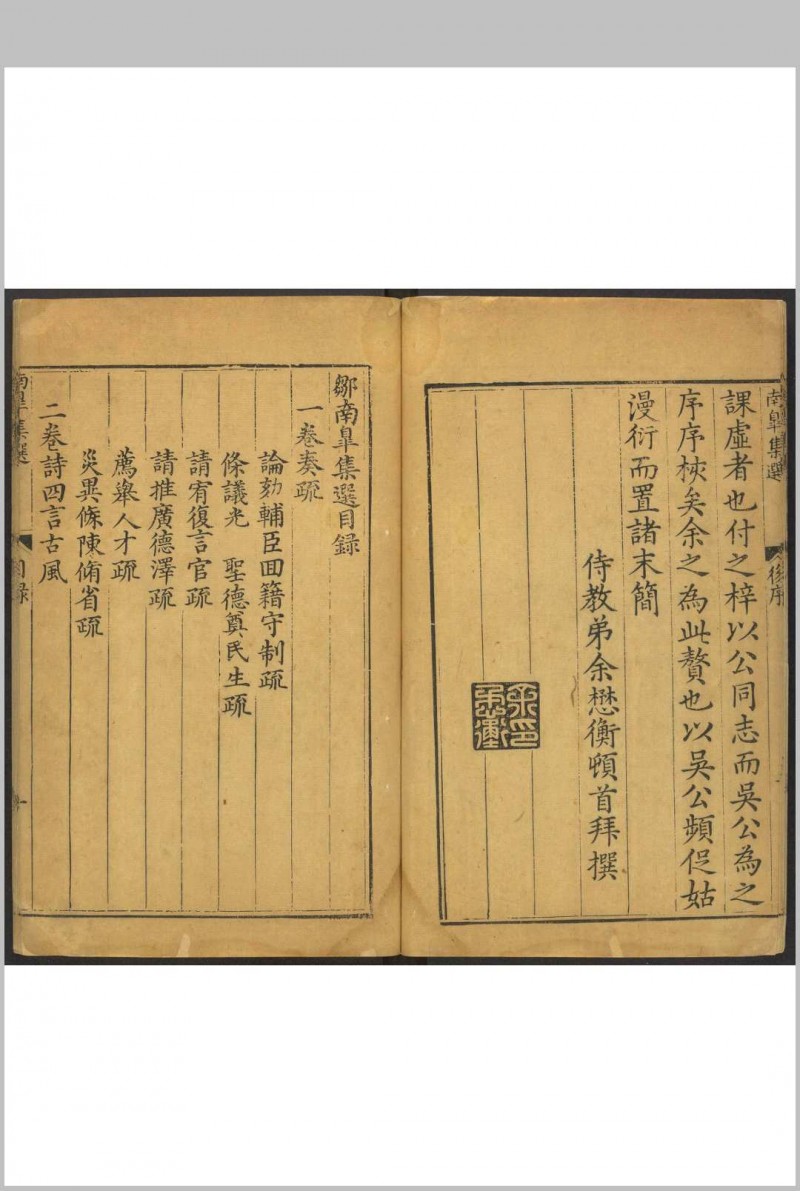 南臯集選
後序
課虛者也付之梓以公同志而吳公為之
序序棭矣余之為此贅也以吳公頻促姑
漫衍而置諸末簡
侍教弟余懋衡頓首拜撰
余印
懋衡
鄒南臯集選目録
一卷奏疏
論劾輔臣回籍守制疏
條議光　聖德奠民生疏
請宥復言官疏
請推廣德澤疏
薦舉人才疏
災異條陳脩省疏
二卷詩四言古風
南臯集選
目録
一